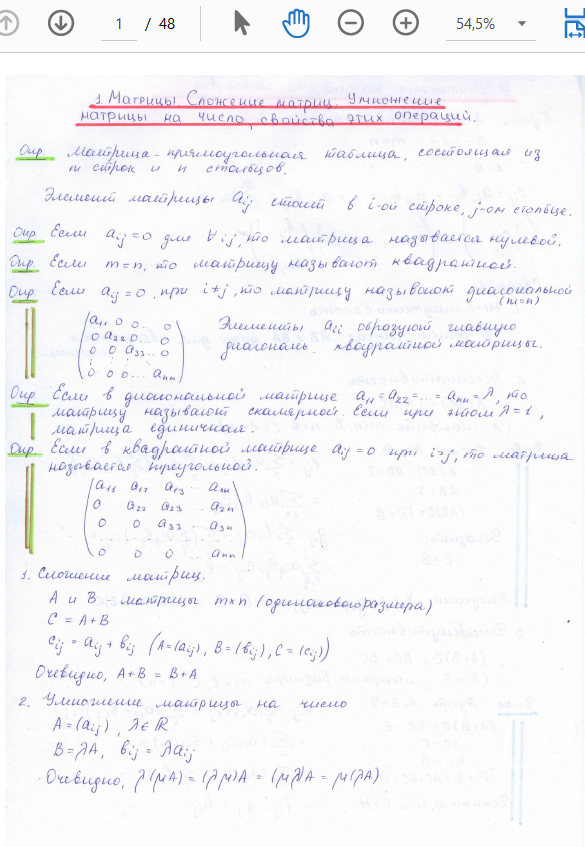 1 / 48 54,5%
1 Матрицы. Сложение матриц. Умножение
матрицы на число, свойства этих операций.
Опр. Матрица - прямоугольная таблица, состоящая из
m строк и n столбцов.
Элемент матрицы aij стоит в i-ой строке, j-ом столбце.
Опр. Если aij=0 для ∀ij, то матрица называется нулевой.
Опр. Если m=n, то матрицу называют квадратной.
Опр. Если aij=0 при i≠j, то матрицу называют диагональной
(m=n)
a11 0 0 ... 0
0 a22 0 ... 0
0 0 a33 ... 0
0 0 0 ... ann
Элементы aii образуют главную
диагональ квадратной матрицы.
Опр. Если в диагональной матрице a11=a22=...=ann=λ, то
матрицу называют скалярной. Если при этом λ=1,
матрица единичная.
Опр. Если в квадратной матрице aij=0 при i>j, то матрица
называется треугольной.
a11 a12 a13 ... a1n
0 a22 a23 ... a2n
0 0 a33 ... a3n
0 0 0 ... ann
1. Сложение матриц.
A и B - матрицы m×n (одинакового размера)
C = A+B
cij = aij + bij (A=(aij), B=(bij), C=(cij))
Очевидно, A+B = B+A
2. Умножение матрицы на число
A=(aij), λ∈ℝ
B=λA, bij=λaij
Очевидно, λ(μA) = (λμ)A = (μλ)A = μ(λA)